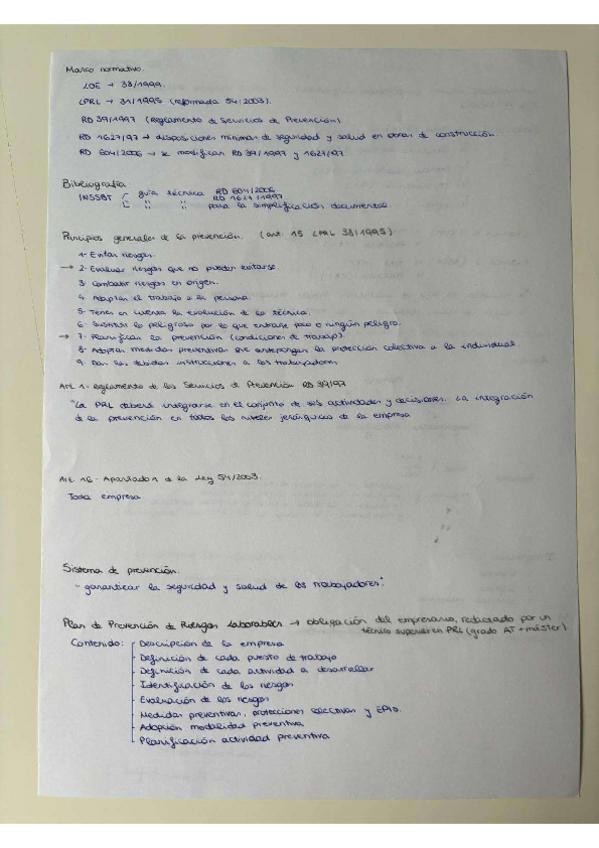 Marco normativo.
LOE → 38/1999.
LPRL → 31/1995 (reformada 54/2003).
RD 39/1997 (Reglamento de Servicios de Prevención)
RD 1627/97 → disposiciones mínimas de seguridad y salud en obras de construcción.
RD 604/2006 → se modifican RD 39/1997 y 1627/97
Bibliografía
INSSBT guía técnica RD 604/2006
" " RD 1627/1997
" " para la simplificación documental
Principios generales de la prevención. (art. 15 LPRL 38/1995)
1- Evitar riesgos.
→ 2- Evaluar riesgos que no puedan evitarse.
3- Combatir riesgos en origen.
4- Adaptar el trabajo a la persona.
5- Tener en cuenta la evolución de la técnica.
6- Sustituir lo peligroso por lo que entrañe poco o ningún peligro.
→ 7- Planificar la prevención (condiciones de trabajo).
8- Adoptar medidas preventivas que antepongan la protección colectiva a la individual
9- Dar las debidas instrucciones a los trabajadores
Art 1- Reglamento de los Servicios de Prevención RD 39/97
"La PRL deberá integrarse en el conjunto de sus actividades y decisiones. La integración
de la prevención en todos los niveles jerárquicos de la empresa
Art 16- Apartado 1 de la Ley 54/2003.
Toda empresa
Sistema de prevención.
- garanticar la seguridad y salud de los trabajadores."
Plan de Prevención de Riesgos Laborables → obligación del empresario, redactado por un
técnico superior en PRL (grado AT + máster)
Contenido: Descripción de la empresa
Definición de cada puesto de trabajo
Definición de cada actividad a desarrollar
Identificación de los riesgos
Evaluación de los riesgos
Medidas preventivas, protecciones colectivas y EPIs.
Adopción modalidad preventiva
Planificación actividad preventiva